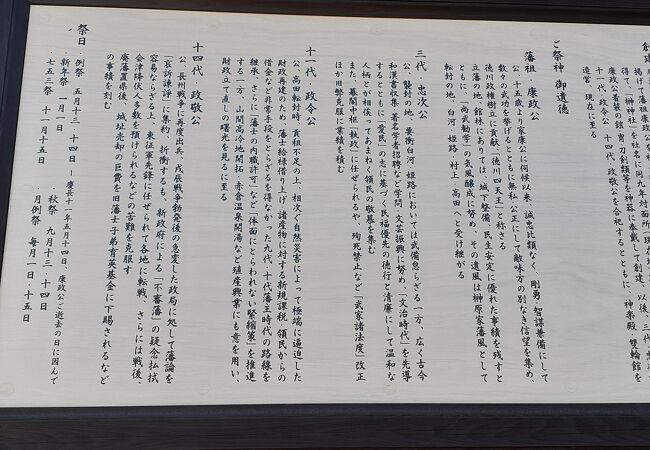 創建
揆に藩祖榊原康政公
得て「榊神社」を社名に同九年対面所（現在
康政公着装の鎧冑・刀剣類等を神器に奉戴して創建、以後、三代 忠次
十一代 政令公 十四代 政敬公を合祀するとともに、神楽殿・双輪館を
造営 現在に至る
ご祭神 御遺徳
藩祖・康政公
公、十五歳より家康公に伺候以来、誠忠比類なく、剛勇・智謀兼備にして
数々の武功を挙げるとともに無私・公正にして敵味方の別なき信望を集め、
徳川政権樹立に貢献、「徳川四天王」と称さる
立藩の地、館林にありては、城下整備、民生安定に優れた事績を残すと
ともに、「尚武勤学」の気風醸成に努め、その遺風は榊原家藩風として
転封の地、白河 姫路 村上 高田へと受け継がる
三代 忠次公
公、襲封の地、要衝白河 姫路においては武備怠らざる一方、広く古今
和漢書収集、著名学者招聘など学問・文芸振興に努め、「文治時代」を先導
するとともに「愛民」の志に基づく民福優先の徳行と清廉にして温和な
人柄とが相俟ってあまねく領民の敬慕を集む
また、幕閣中枢「執政」に任ぜられるや、殉死禁止など「武家諸法度」改正
ほか旧弊克服に業績を積む
十一代 政令公
公、高田転封時、貢租不足の上、相次ぐ自然災害によって極端に逼迫した
財政再建のため、藩士給禄借り上げ、諸産物に対する新規課税・領民からの
借金など非常手段をとらざるを得なかった九代、十代藩主時代の路線を
継承、さらに「藩士の内職許可」など「体面にとらわれない緊縮策」を推進
する一方、山間高冷地開拓、赤倉温泉開湯など殖産興業にも意を用い、
財政立て直しの曙光を見るに至る
十四代 政敬公
公、長州戦争に再度出兵、戊辰戦争勃発後の急変した政局に処して藩論を
「哀訴諫諍」に集約、折衝するも、新政府による「不審藩」の疑念払拭
容易ならざる上、東征軍先鋒に任ぜられて各地に転戦、さらには戦後、
会津降伏人多数を預けられるなどの苦難を克服す
廃藩置県後、城址売却の巨費を旧藩士子弟育英基金に下賜されるなど
の事績を刻む
祭日
・例祭 五月十三・十四日 ―慶長十一年五月十四日、康政公ご逝去の日に因んで
・新年祭 一月一日 ・秋祭 九月十三・十四日
・七五三祭 十一月十五日 ・月例祭 毎月一日・十五日